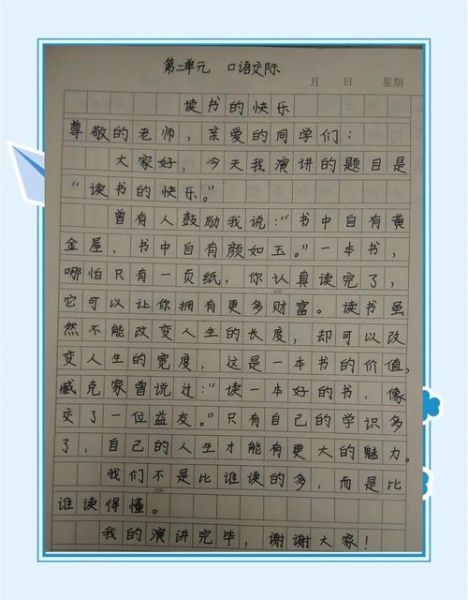 第二单元 口语交际
月 日 星期
读书的快乐
尊敬的老师，亲爱的同学们：
大家好，今天我演讲的题目是
“读书的快乐。”
曾有人鼓励我说：“书中自有黄
金屋，书中自有颜如玉。”一本书，
哪怕只有一页纸，你认真读完了，
它可以让你拥有更多财富。读书虽
然不能改变人生的长度，却可以改
变人生的宽度，这是一本书的价值，
臧克家曾说过：“读一本好的书，像
交了一位益友。”只有自己的学识多
了，自己的人生才能有更大的魅力。
我们不是比谁读的多，而是比
谁读得懂。
我的演讲完毕，谢谢大家！